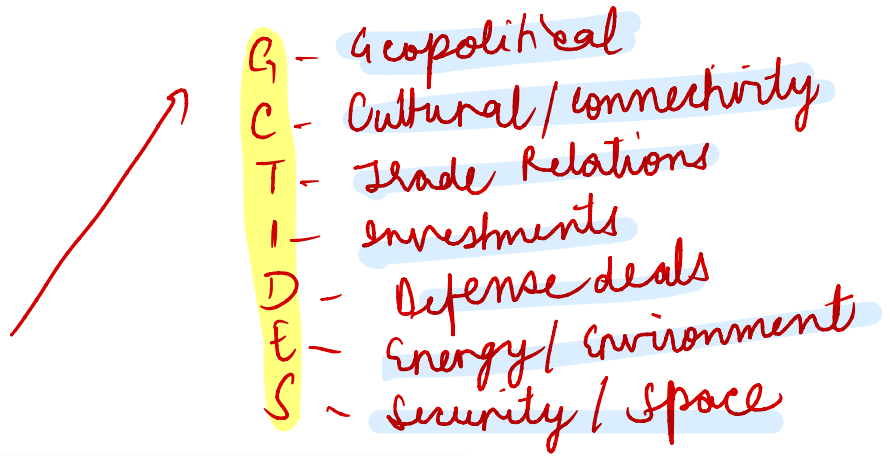 G - Geopolitical
C - Cultural/connectivity
T - Trade Relations
I - Investments
D - Defense deals
E - Energy/Environment
S - Security/Space